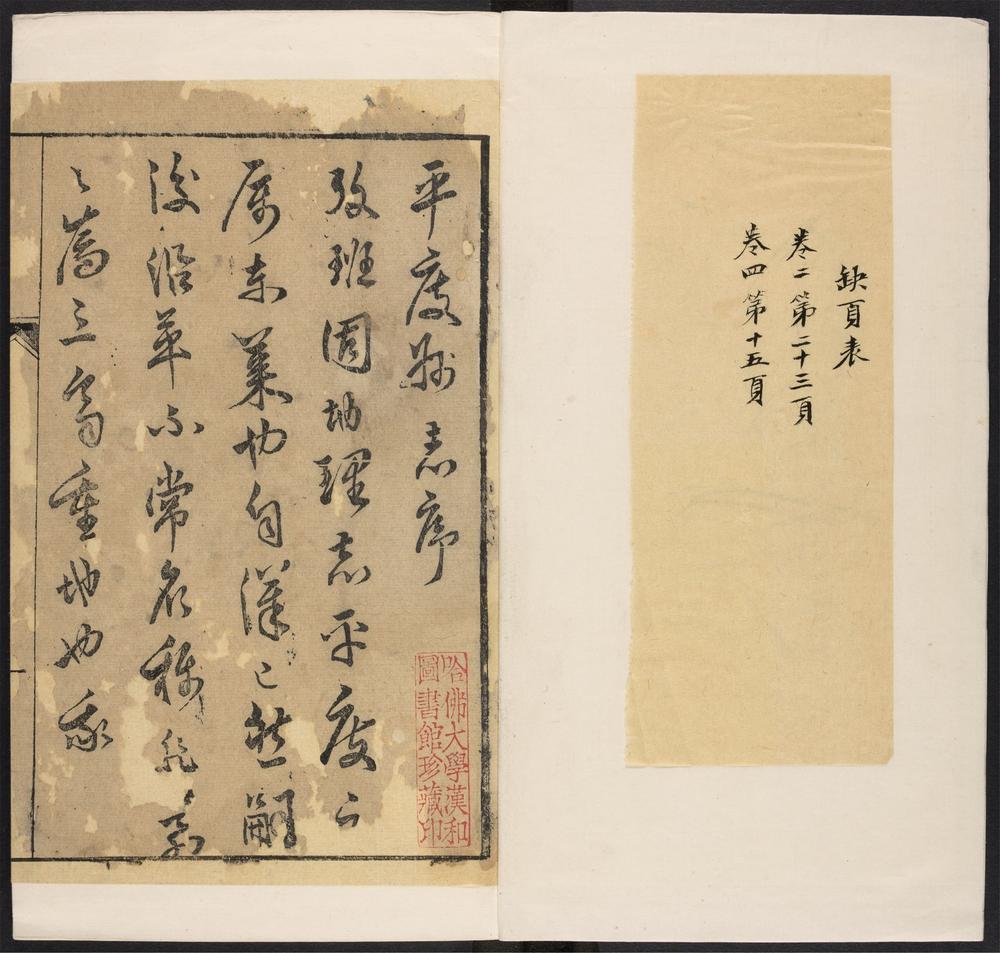 缺頁表
卷二第二十三頁
卷四第十五頁
平度縣志序
攷班固地理志平度亡
属东萊也自漢已然嗣
後沿革不常名稱
之舊三
重地也我
哈佛大學漢和
圖書館珍藏印